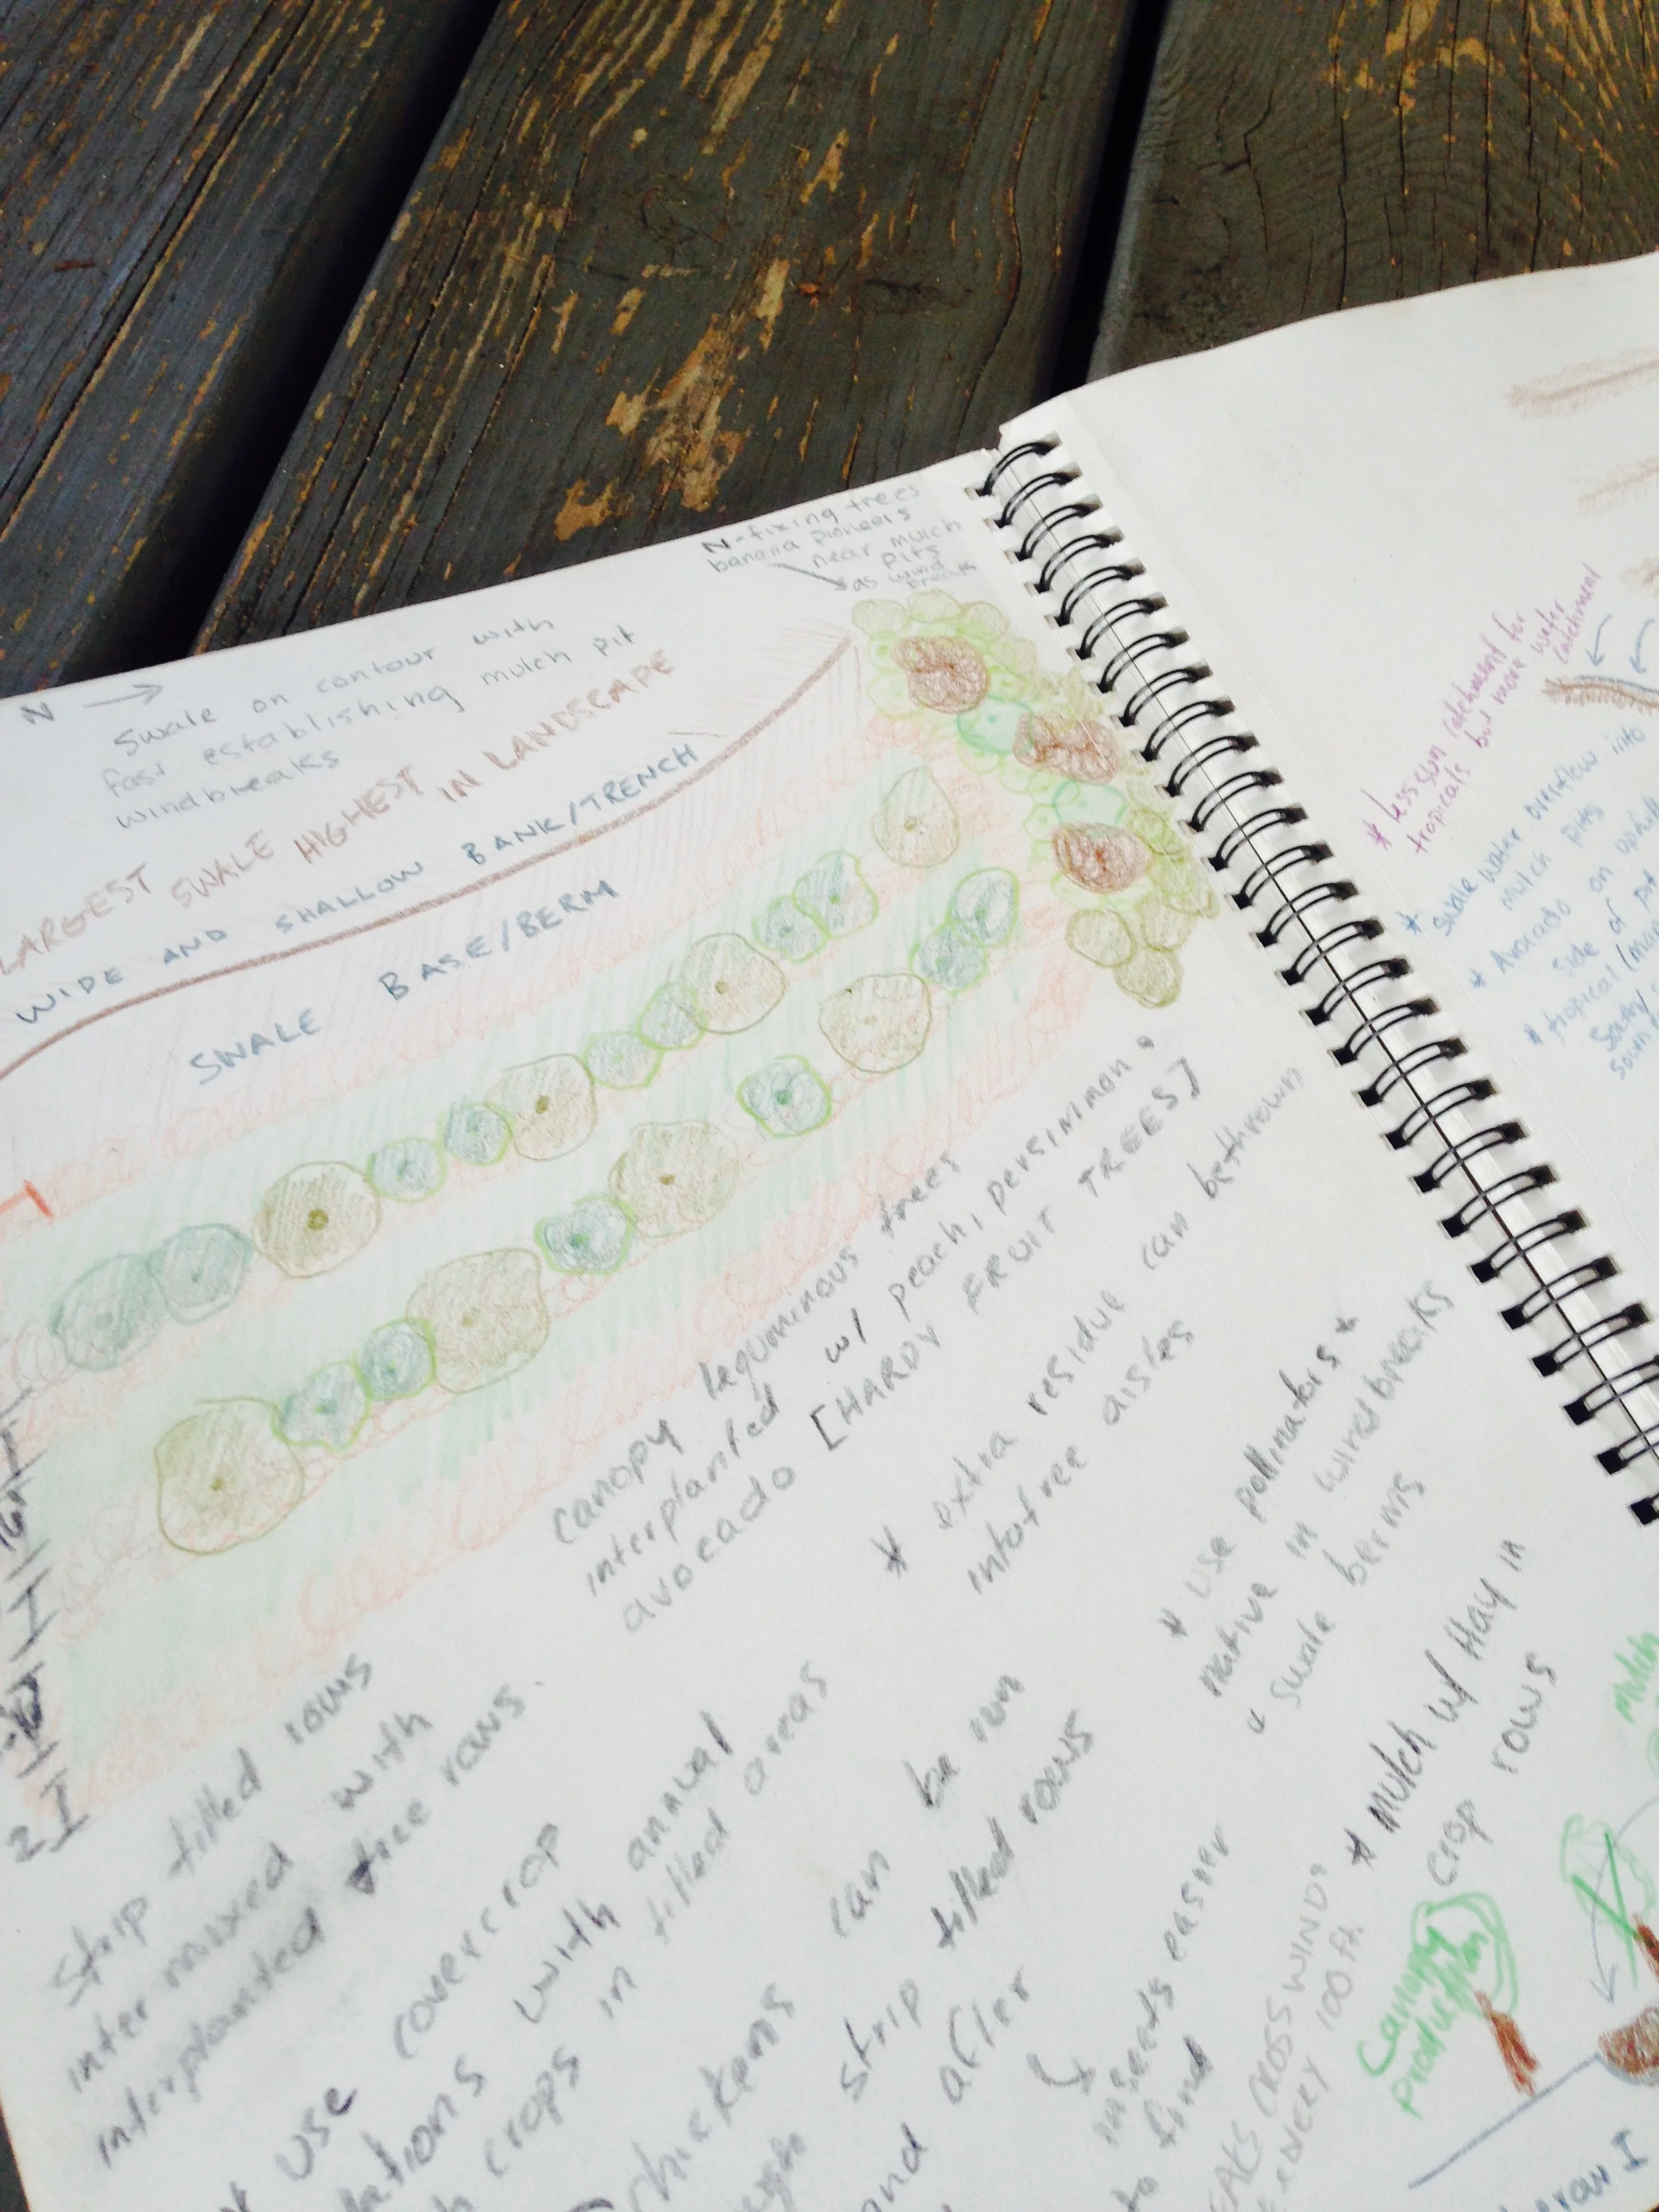 N →
Swale on contour with
fast establishing mulch pit
windbreaks
LARGEST SWALE HIGHEST IN LANDSCAPE
WIDE AND SHALLOW BANK/TRENCH
SWALE BASE/BERM
N-fixing trees
banana pioneers
near mulch
pits
as wind
break
canopy leguminous trees
interplanted w/ peach, persimmon,
avocado [HARDY FRUIT TREES]
* extra residue can be thrown
into tree aisles
* use pollinators *
native in windbreaks
swale berms
* mulch w/ Hay in
crop rows
Strip tilled rows
inter mixed with
interplanted tree rows.
use covercrop
with annual
crops in tilled areas
chickens can be run
strip tilled rows
after
insects easier
to find
CROSS WINDS
EVERY 100 ft.
2
* less sun catchment for
tropicals but more water
catchment
* Swale water overflow into
mulch pits
* Avocado on uphill
side of pit
* tropical
South
mulch
Canopy
production